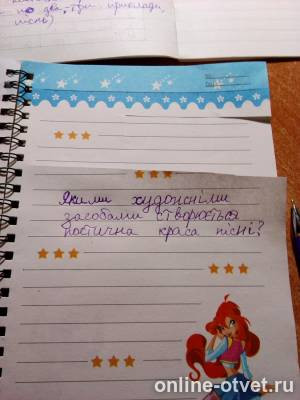 по два, три приклади,
Якими художніми
засобами створюється
поетична краса пісні?
online-otvet.ru